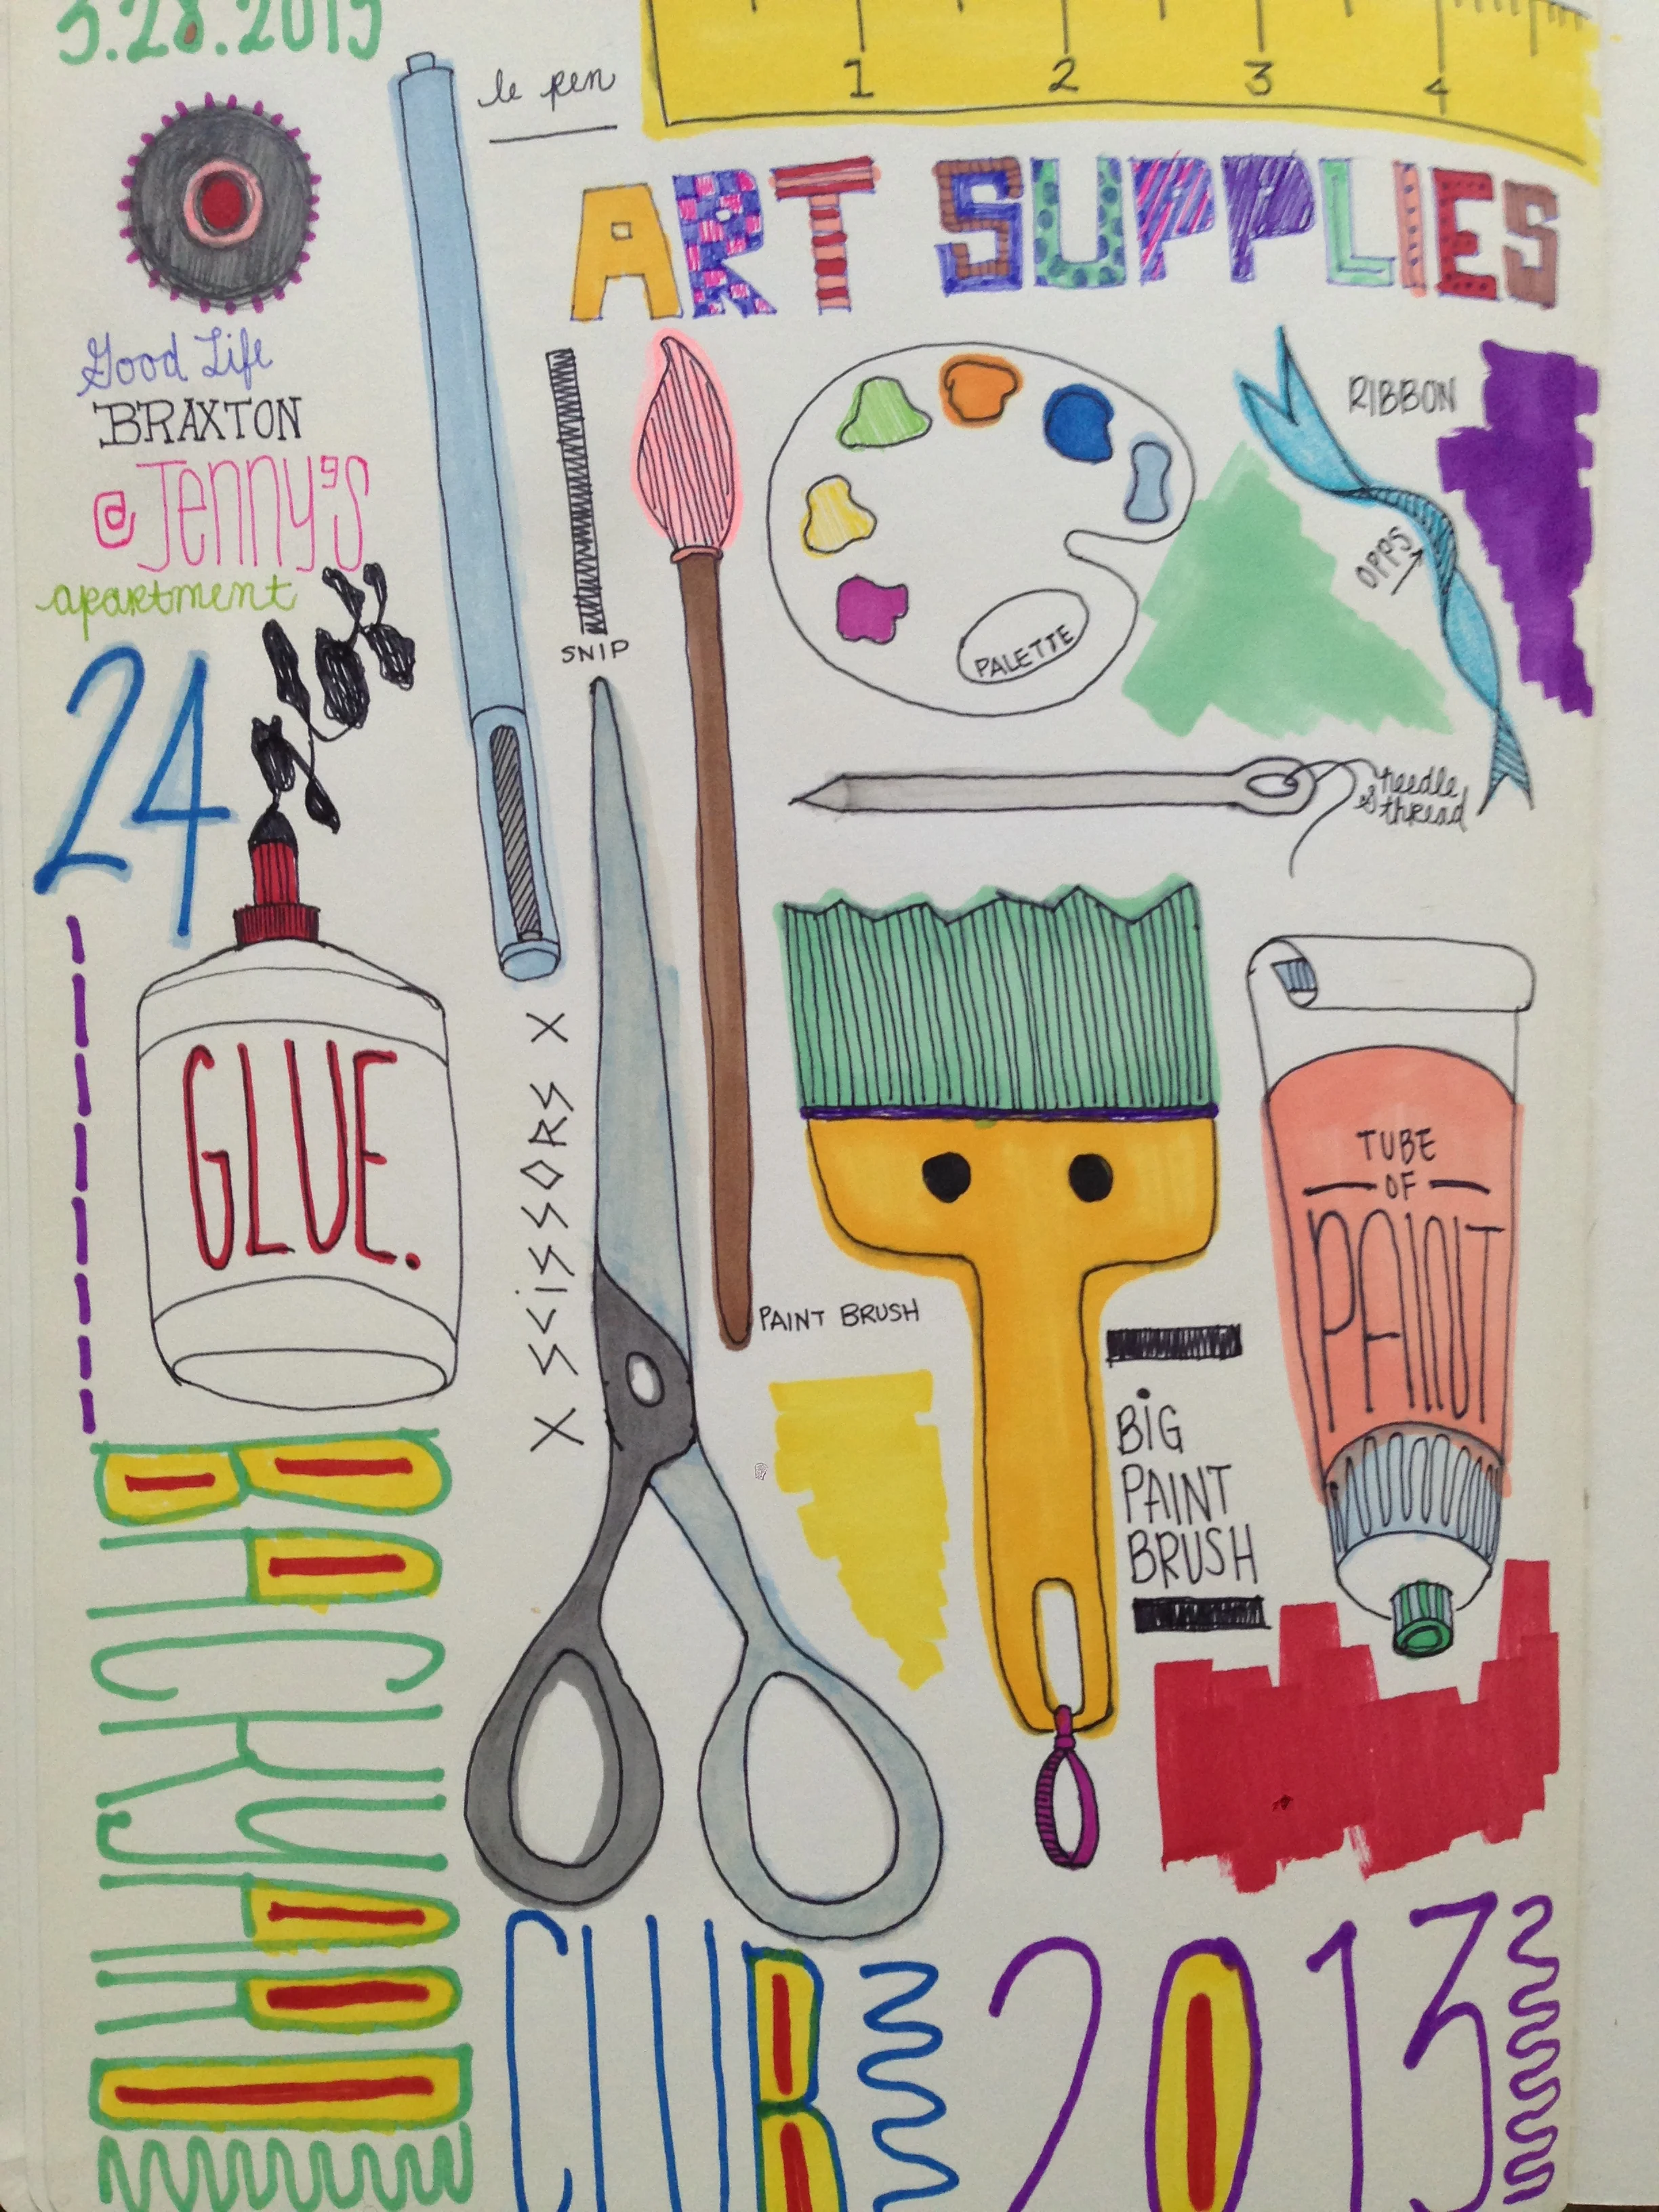 3.28.2013
le pen
1 2 3 4
ART SUPPLIES
Good Life
BRAXTON
@ JENNY'S
apartment
24
SNIP
PALETTE
RIBBON
OPPS
needle
& thread
GLUE.
X SCISSORS X
PAINT BRUSH
BIG
PAINT
BRUSH
TUBE
OF
PAINT
BACKYARD
CLUB 2013